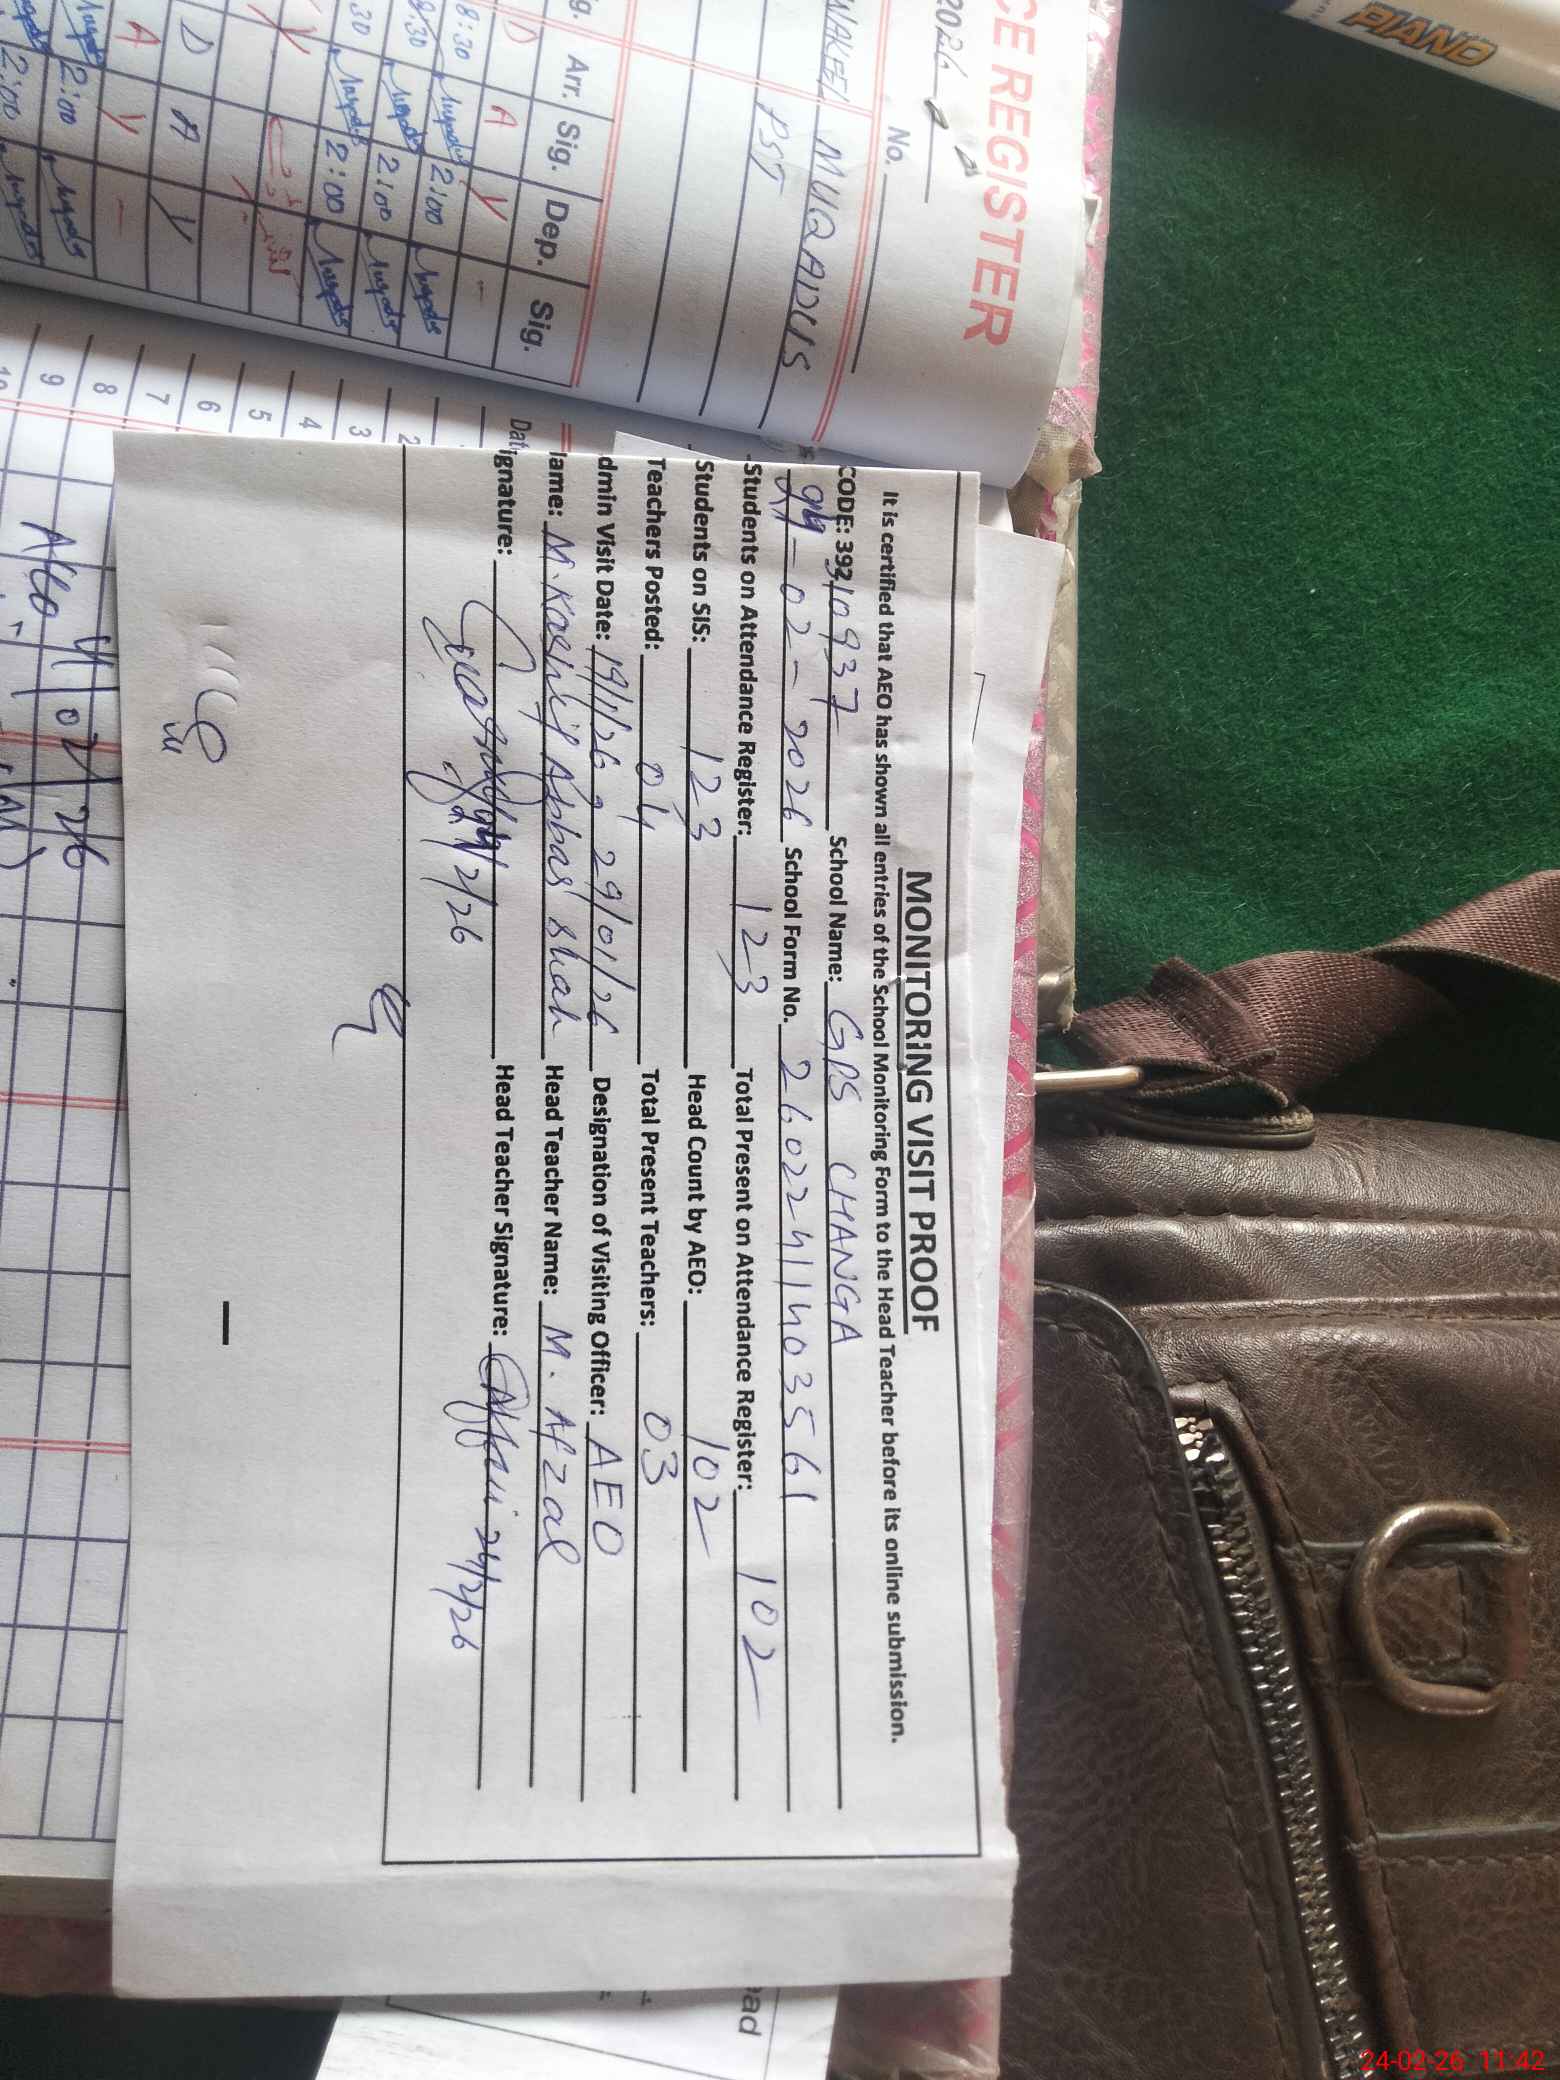 PIANO
CE REGISTER
2026
No.
WAKEEL MUQADUS
PST
g. Arr. Sig. Dep. Sig.
D A V -
8:30 2:00
8:30 2:00
30 2:00
D A V
A V -
2:00
2:00
2
3
4
5
6
7
8
9
10
AEO
02/26
MONITORING VISIT PROOF
It is certified that AEO has shown all entries of the School Monitoring Form to the Head Teacher before its online submission.
CODE: 39210937 School Name: GPS CHANGA
-02-2026 School Form No. 26022411403561
Students on Attendance Register: 123 Total Present on Attendance Register: 102
Students on SIS: 123 Head Count by AEO: 102
Teachers Posted: 04 Total Present Teachers: 03
dmin Visit Date: 19/1/26, 29/01/26 Designation of Visiting Officer: AEO
lame: M. Kashif Abbas Shah Head Teacher Name: M. Afzal
ignature: 2/26 Head Teacher Signature: 24/2/26
ead
24-02-26 11:42